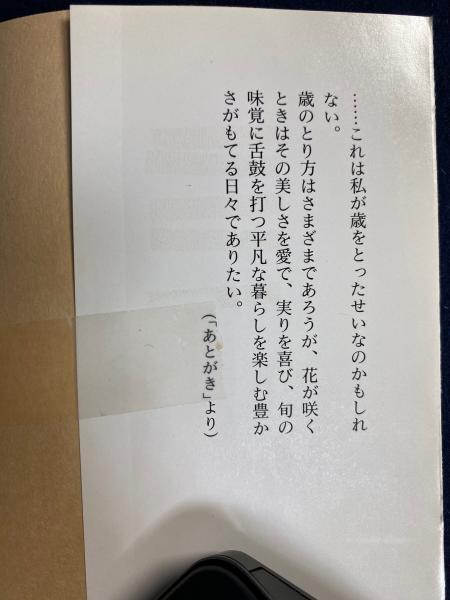 ……これは私が歳をとったせいなのかもしれ
ない。
歳のとり方はさまざまであろうが、花が咲く
ときはその美しさを愛で、実りを喜び、旬の
味覚に舌鼓を打つ平凡な暮らしを楽しむ豊か
さがもてる日々でありたい。
（「あとがき」より）